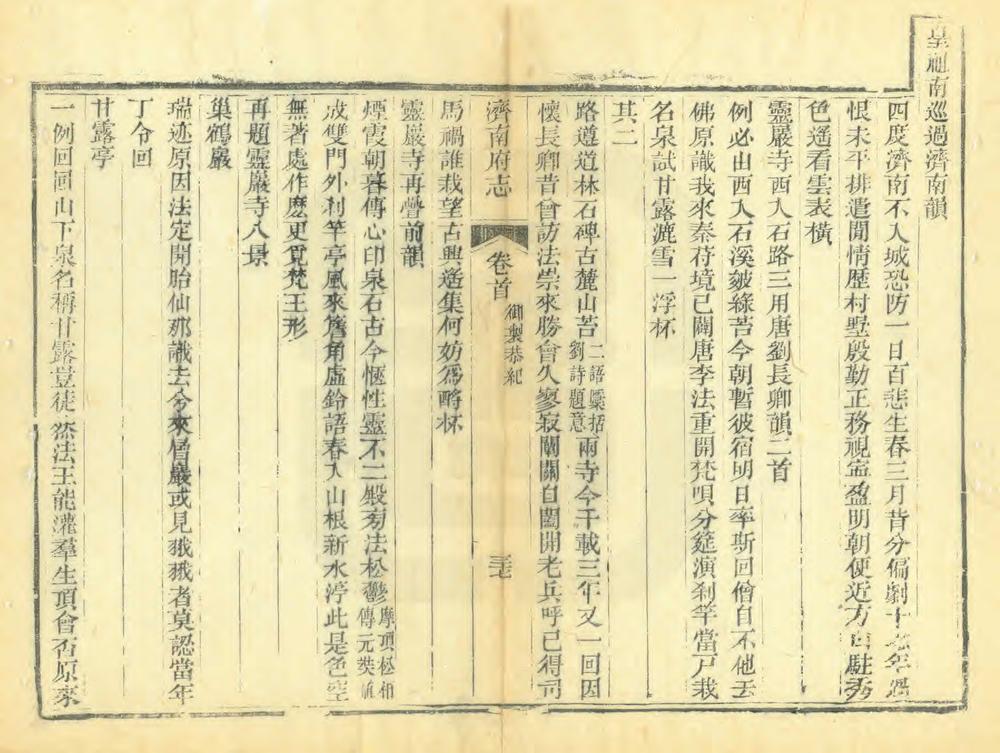 皇祖南巡過濟南韻
四度濟南不入城恐防一日百悲生春三月昔分偏劇十七年過
恨未平排遣閒情歷村墅殷勤正務視寧盈明朝便近方山駐秀
色遙看雲表橫
靈巖寺西入石路三用唐劉長卿韻二首
例必由西入石溪皴綠苔今朝暫彼宿明日率斯回僧自不他去
佛原識我來秦苻境已闢唐李法重開梵唄分筵演剎竿當戶栽
名泉試甘露漉雪一浮杯
其二
路遵道林石碑古麓山苔二語檃括劉詩題意兩寺今千載三年又一回因
懷長卿昔曾訪法崇來勝會久寥寂闌關自闔開老兵呼已得司
濟南府志 卷首 御製恭紀 三七
馬禍誰栽望古興遙集何妨爲酹杯
靈巖寺再疊前韻
煙霞朝暮傳心印泉石古今愜性靈不二殿旁法松鬱摩頂松相傳元奘
成雙門外利竿亭風來簷角虛鈴語春入山根新水渟此是色空
無著處作麽更覓梵王形
再題靈巖寺八景
巢鶴巖
瑞迹原因法定開胎仙那識去今來層巖或見狨狨者莫認當年
丁令回
甘露亭
一例回回山下泉名稱甘露豈徒然法王能灌羣生頂會否原來